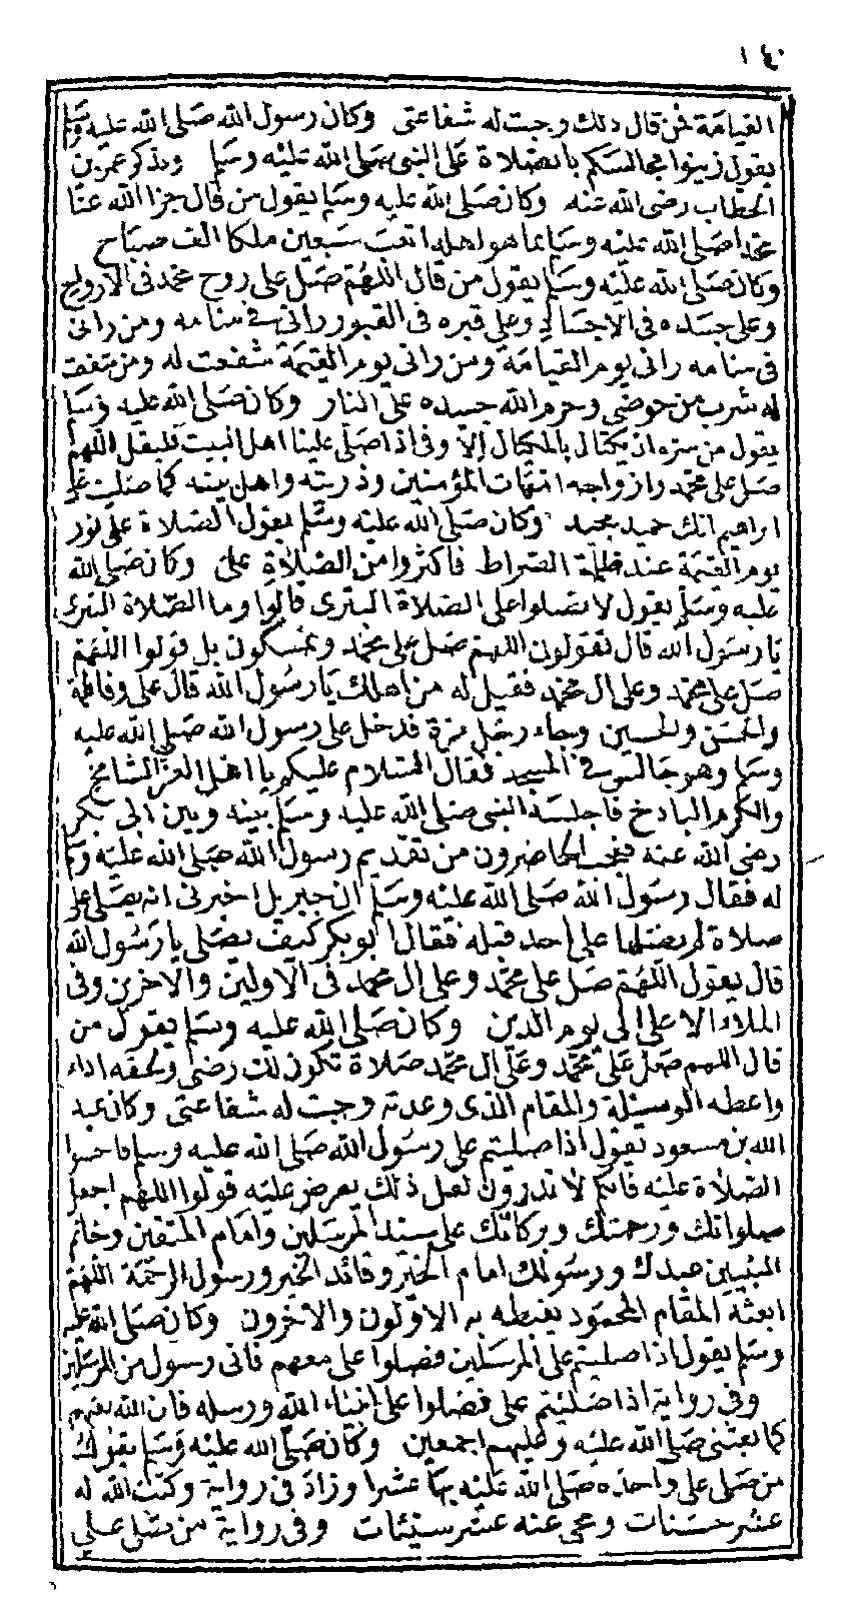 القيامة فمن قال ذلك وجبت له شفاعتى وكان رسول الله صلى الله عليه وسلم
يقول زينوا مجالسكم بالصلاة على النبى صلى الله عليه وسلم وبذكر عمر بن
الخطاب رضى الله عنه وكان صلى الله عليه وسلم يقول من قال جزا الله عنا
محمدا صلى الله عليه وسلم بما هو اهله اتعب سبعين ملكا الف صباح
وكان صلى الله عليه وسلم يقول من قال اللهم صل على روح محمد فى الارواح
وعلى جسده فى الاجساد وعلى قبره فى القبور رانى فى منامه ومن رانى
فى منامه رانى يوم القيامة ومن رانى يوم القيمة شفعت له ومن شفعت
له شرب من حوضى وحرم الله جسده على النار وكان صلى الله عليه وسلم
يقول من سره ان يكتال بالمكيال الاوفى اذا صلى علينا اهل البيت فليقل اللهم
صل على محمد وازواجه امهات المؤمنين وذريته واهل بيته كما صليت على
ابراهيم انك حميد مجيد وكان صلى الله عليه وسلم يقول الصلاة على نور
يوم القيمة عند ظلمة الصراط فاكثروا من الصلاة على وكان صلى الله
عليه وسلم يقول لا تصلوا على الصلاة البترى قالوا وما الصلاة البترى
يا رسول الله قال تقولون اللهم صل على محمد وتمسكون بل قولوا اللهم
صل على محمد وعلى ال محمد فقيل له من اهلك يا رسول الله قال على وفاطمة
والحسن والحسين وجاء رجل مرة فدخل على رسول الله صلى الله عليه
وسلم وهو جالس فى المسجد فقال السلام عليكم يا اهل العز الشامخ
والكرم الباذخ فاجلسه النبى صلى الله عليه وسلم بينه وبين ابى بكر
رضى الله عنه فعجب الحاضرون من تقديم رسول الله صلى الله عليه وسلم
له فقال رسول الله صلى الله عليه وسلم ان جبريل اخبرنى انه يصلى على
صلاة لم يصلها على احد قبله فقال ابو بكر كيف يصلى يا رسول الله
قال يقول اللهم صل على محمد وعلى ال محمد فى الاولين والاخرين وفى
الملاء الاعلى الى يوم الدين وكان صلى الله عليه وسلم يقول من
قال اللهم صل على محمد وعلى ال محمد صلاة تكون لك رضى ولحقه اداء
واعطه الوسيلة والمقام الذى وعدته وجبت له شفاعتى وكان عبد
الله بن مسعود يقول اذا صليتم على رسول الله صلى الله عليه وسلم فاحسنوا
الصلاة عليه فانكم لا تدرون لعل ذلك يعرض عليه قولوا اللهم اجعل
صلواتك ورحمتك وبركاتك على سيد المرسلين وامام المتقين وخاتم
النبيين عبدك ورسولك امام الخير وقائد الخير ورسول الرحمة اللهم
ابعثه المقام المحمود يغبطه به الاولون والاخرون وكان صلى الله عليه
وسلم يقول اذا صليتم على المرسلين فصلوا على معهم فانى رسول من المرسلين
وفى رواية اذا صليتم على فصلوا على انبياء الله ورسله فان الله بعثهم
كما بعثنى صلى الله عليه وعليهم اجمعين وكان صلى الله عليه وسلم يقول
من صلى على واحدة صلى الله عليه بها عشرا وزاد فى رواية وكتب الله له
عشر حسنات ومحى عنه عشر سيئات وفى رواية من صلى على